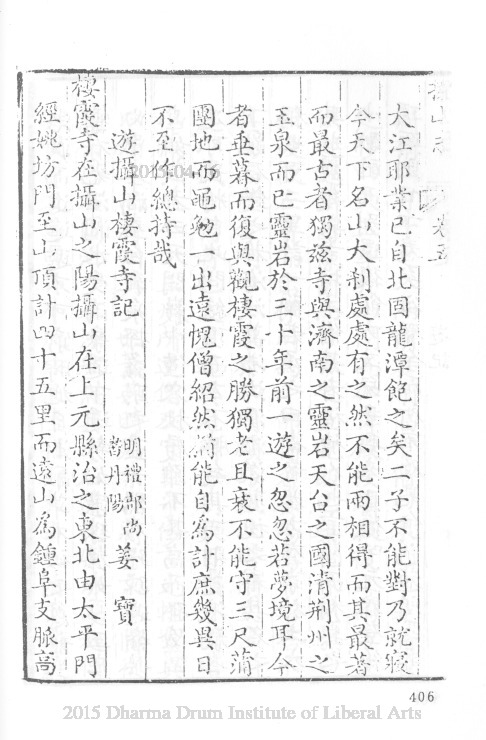 大江耶業已自北固龍潭飽之矣二子不能對乃就寢
今天下名山大刹處處有之然不能兩相得而其最著
而最古者獨兹寺與濟南之靈岩天台之國清荆州之
玉泉而已靈岩於三十年前一遊之忽忽若夢境耳今
者垂暮而復與觀棲霞之勝獨老且衰不能守三尺蒲
團地而黽勉一出遠愧僧紹然猶能自爲計庶幾異日
不至作總持哉
遊攝山棲霞寺記
明禮部尚書丹陽姜寳
棲霞寺在攝山之陽攝山在上元縣治之東北由太平門
經姚坊門至山頂計四十五里而遠山爲鍾阜支脈高
卷五
406
2015/04/16
2015 Dharma Drum Institute of Liberal Arts